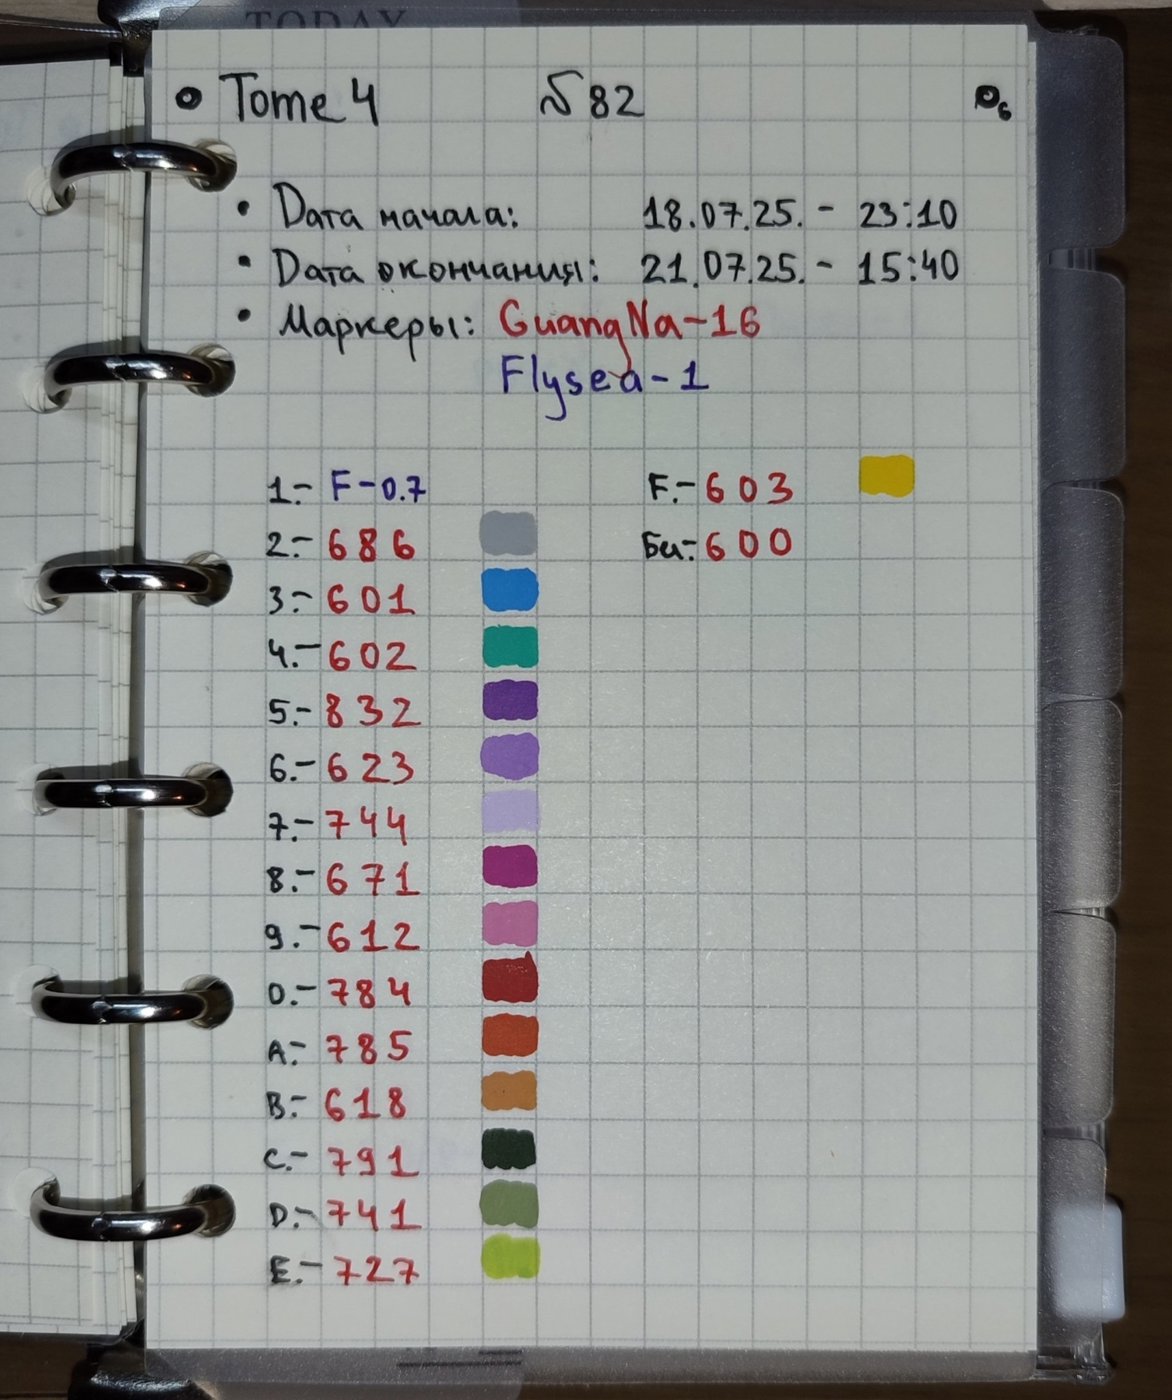 TODAY
Tome 4 №82
• Дата начала: 18.07.25. - 23:10
• Дата окончания: 21.07.25. - 15:40
• Маркеры: GuangNa-16
Flysea-1
1.- F-0.7
2.- 686
3.- 601
4.- 602
5.- 832
6.- 623
7.- 744
8.- 671
9.- 612
0.- 784
A.- 785
B.- 618
C.- 791
D.- 741
E.- 727
F.- 603
Би.- 600